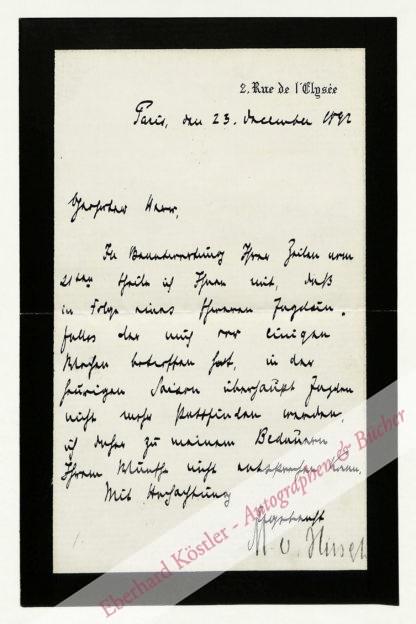 2. Rue de l'Elysée
Paris, den 23. December 1892
Geehrter Herr,
In Beantwortung Ihrer Zeilen vom
21ten theile ich Ihnen mit, daß
in Folge eines schweren Jagdun-
falles der mich vor einigen
Wochen betroffen hat, in der
heurigen Saison überhaupt Jagden
nicht mehr stattfinden werden,
ich daher zu meinem Bedauern
Ihrem Wunsche nicht entsprechen kann.
Mit Hochachtung
M. v. Hirsch
Eberhard Köstler - Autographen & Bücher